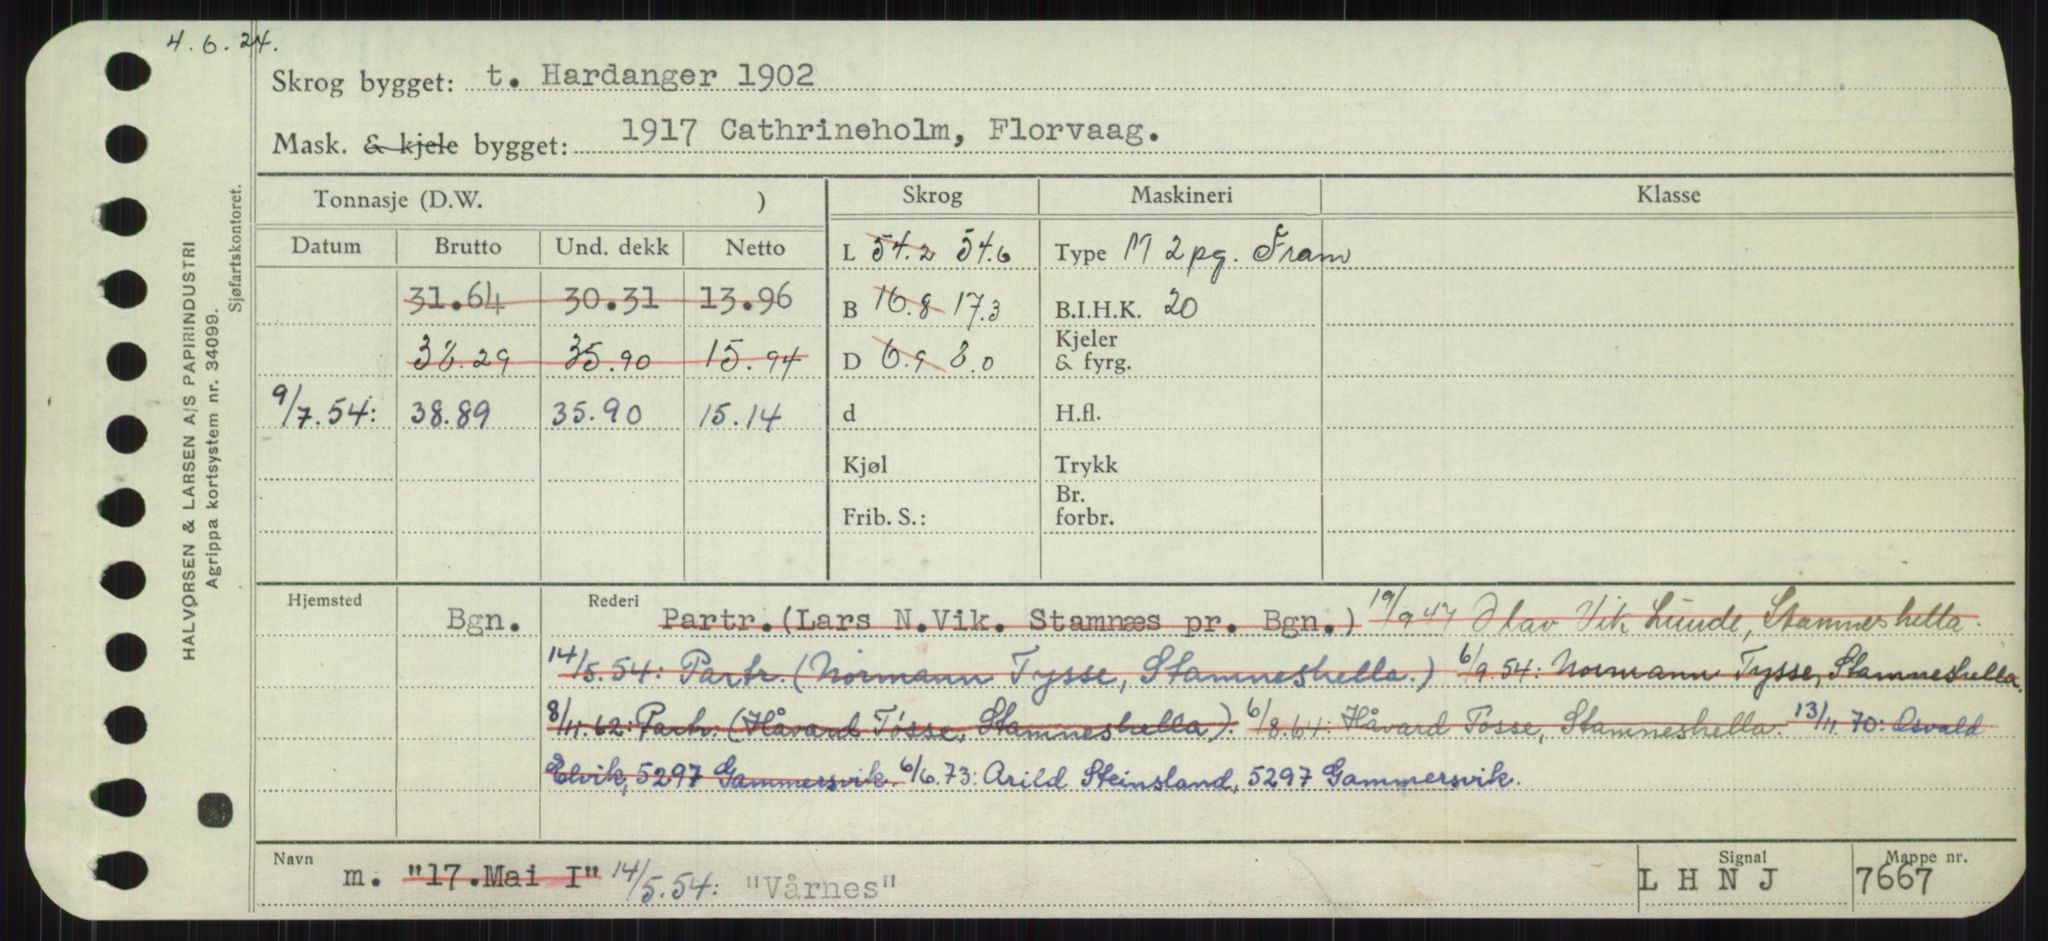 4.6.24.
Skrog bygget: t. Hardanger 1902
Mask. & kjele bygget: 1917 Cathrineholm, Florvaag.
HALVORSEN & LARSEN A/S PAPIRINDUSTRI
Agrippa kortsystem nr. 34099.
Sjøfartskontoret.
Tonnasje (D.W. ) Skrog Maskineri Klasse
Datum Brutto Und. dekk Netto
L 54.2 54.6 Type M 2 pg. Fram
31.64 30.31 13.96 B 16.8 17.3 B.I.H.K. 20
38.29 35.90 15.94 D 6.9 8.0 Kjeler & fyrg.
9/7.54: 38.89 35.90 15.14 d H.fl.
Kjøl Trykk
Frib. S.: Br. forbr.
Hjemsted Bgn. Rederi Partr.(Lars N.Vik. Stamnæs pr. Bgn.) 19/9 47 Olav Vik Lunde, Stamneshella.
14/5.54: Partr. (Normann Tysse, Stamneshella.) 6/9.54: Normann Tysse, Stamneshella.
8/11.62: Partr. (Håvard Tøsse, Stamneshella). 6/8.64: Håvard Tøsse, Stamneshella. 13/11 70: Osvald
Elvik, 5297 Gammersvik. 6/6.73: Arild Steinsland, 5297 Gammersvik.
Navn m. "17.Mai I" 14/5.54: "Vårnes" Signal L H N J Mappe nr. 7667